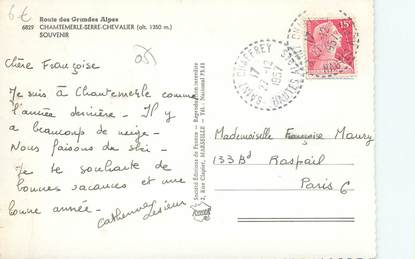 6€
Route des Grandes Alpes
6829 CHAMTEMERLE-SERRE-CHEVALIER (alt. 1350 m.)
SOUVENIR
05
Chère Françoise
Je suis à Chantemerle comme
l'année dernière - Il y
a beaucoup de neige -
Nous faisons du ski -
Je te souhaite de
bonnes vacances et une
bonne année -
Catherine Lesieur
Société Editions de France - Reproduction interdite
2, Rue Clapier, MARSEILLE - Tél. National 75.81
SAINT CHAFFREY
17
27-12
1957
HAUTES ALPES
15F
Mademoiselle Françoise Maury
133 Bd Raspail
Paris 6